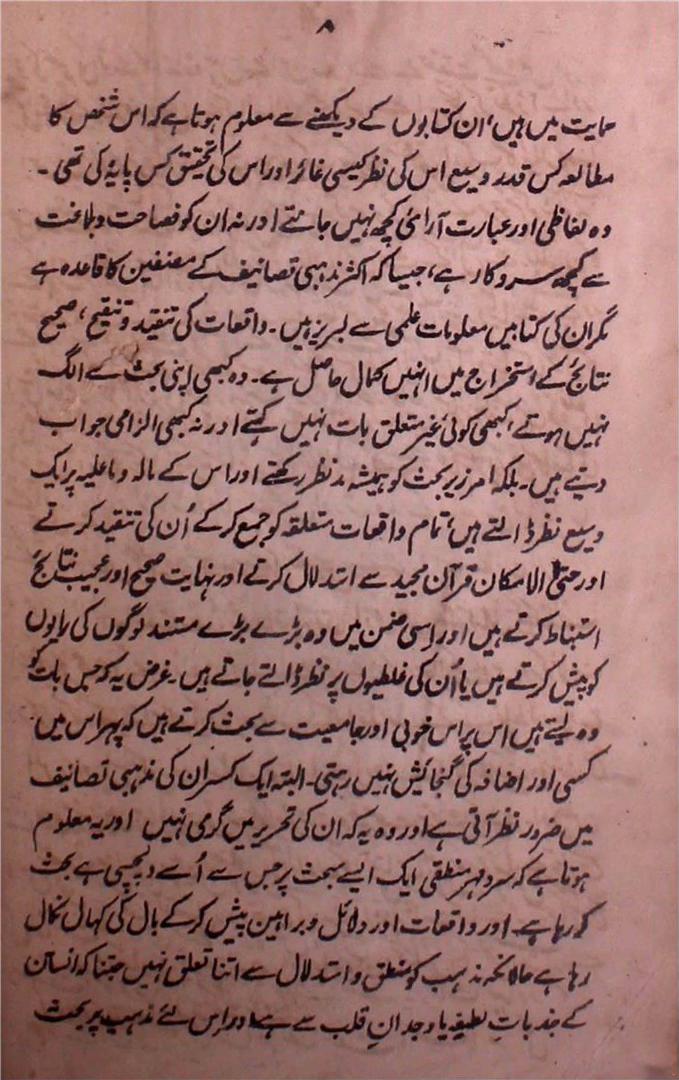 ۸
حمایت میں ہیں، ان کتابوں کے دیکھنے سے معلوم ہوتا ہے کہ اس شخص کا
مطالعہ کس قدر وسیع اس کی نظر کیسی غائر اور اس کی تحقیق کس پایۂ کی تھی۔
وہ لفاظی اور عبارت آرائی کچھ نہیں جانتے اور نہ ان کو فصاحت و بلاغت
سے کچھ سروکار ہے، جیسا کہ اکثر مذہبی تصانیف کے مصنفین کا قاعدہ ہے
مگر ان کی کتابیں معلومات علمی سے لبریز ہیں۔ واقعات کی تنقید و تنقیح، صحیح
نتائج کے استخراج میں انہیں کمال حاصل ہے۔ وہ کبھی اپنی بحث سے الگ
نہیں ہوتے، کبھی کوئی غیر متعلق بات نہیں کہتے اور نہ کبھی الزامی جواب
دیتے ہیں۔ بلکہ امر زیر بحث کو ہمیشہ مدنظر رکھتے اور اس کے مالہ و ماعلیہ پر ایک
وسیع نظر ڈالتے ہیں، تمام واقعات متعلقہ کو جمع کر کے اُن کی تنقید کرتے
اور حتی الامکان قرآن مجید سے استدلال کرتے اور نہایت صحیح اور عجیب نتائج
استنباط کرتے ہیں اور اِسی ضمن میں وہ بڑے بڑے مستند لوگوں کی رایوں
کو پیش کرتے ہیں یا اُن کی غلطیوں پر نظر ڈالتے جاتے ہیں۔ غرض یہ کہ جس بات کو
وہ لیتے ہیں اس پر اس خوبی اور جامعیت سے بحث کرتے ہیں کہ پہر اس میں
کسی اور اضافہ کی گنجائیش نہیں رہتی۔ البتہ ایک کسر ان کی مذہبی تصانیف
میں ضرور نظر آتی ہے اور وہ یہ کہ ان کی تحریر میں گرمی نہیں اور یہ معلوم
ہوتا ہے کہ سرد مہر منطقی ایک ایسے مبحث پر جس سے اُسے دلچسپی ہے بحث
کر رہا ہے۔ اور واقعات اور دلائل و براہین پیش کر کے بال کی کہال نکال
رہا ہے حالانکہ مذہب کو منطق و استدلال سے اتنا تعلق نہیں جتنا کہ انسان
کے جذباتِ لطیفہ یا وجدانِ قلب سے ہے اور اِس لئے مذہب پر بحث